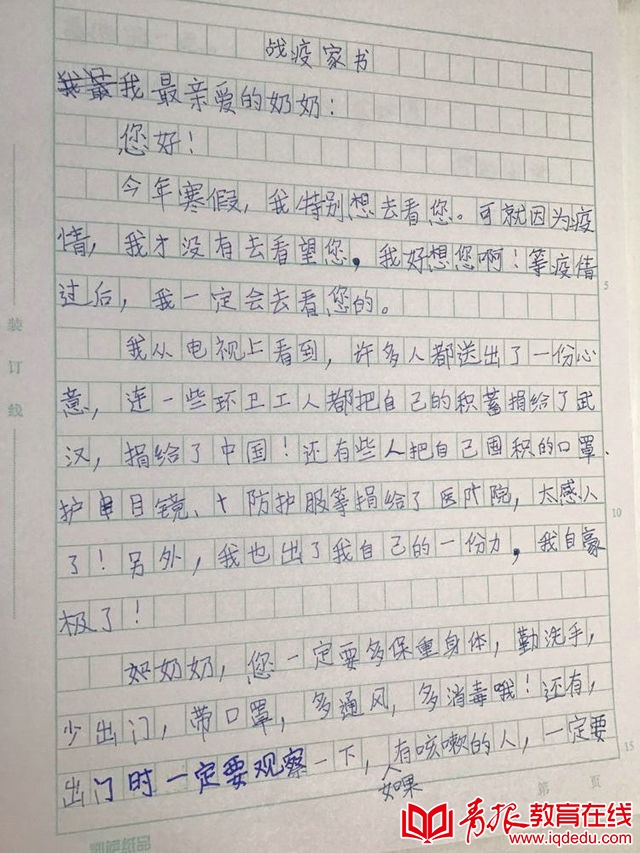 战疫家书
我最亲爱的奶奶：
您好！
今年寒假，我特别想去看您。可就因为疫
情，我才没有去看望您，我好想您啊！等疫情
过后，我一定会去看您的。
我从电视上看到，许多人都送出了一份心
意，连一些环卫工人都把自己的积蓄捐给了武
汉，捐给了中国！还有些人把自己囤积的口罩、
护目镜、防护服等捐给了医院，太感人
了！另外，我也出了我自己的一份力，我自豪
极了！
奶奶，您一定要多保重身体，勤洗手，
少出门，带口罩，多通风，多消毒哦！还有，
出门时一定要观察一下，如果有咳嗽的人，一定要
装订线
5
10
15
第 页
青报教育在线
www.iqdedu.com